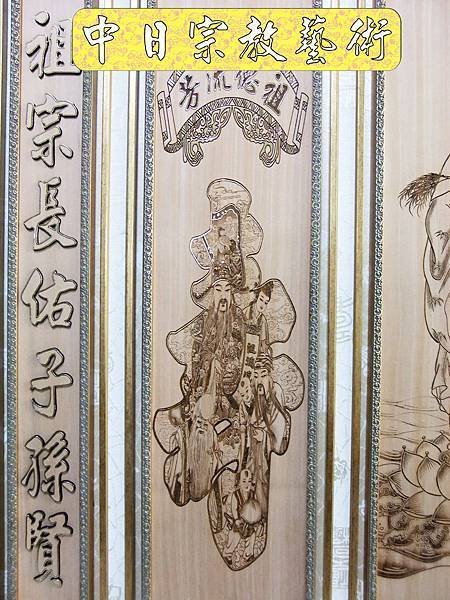 中日宗教藝術
祖德流芳
祖宗長佑子孫賢